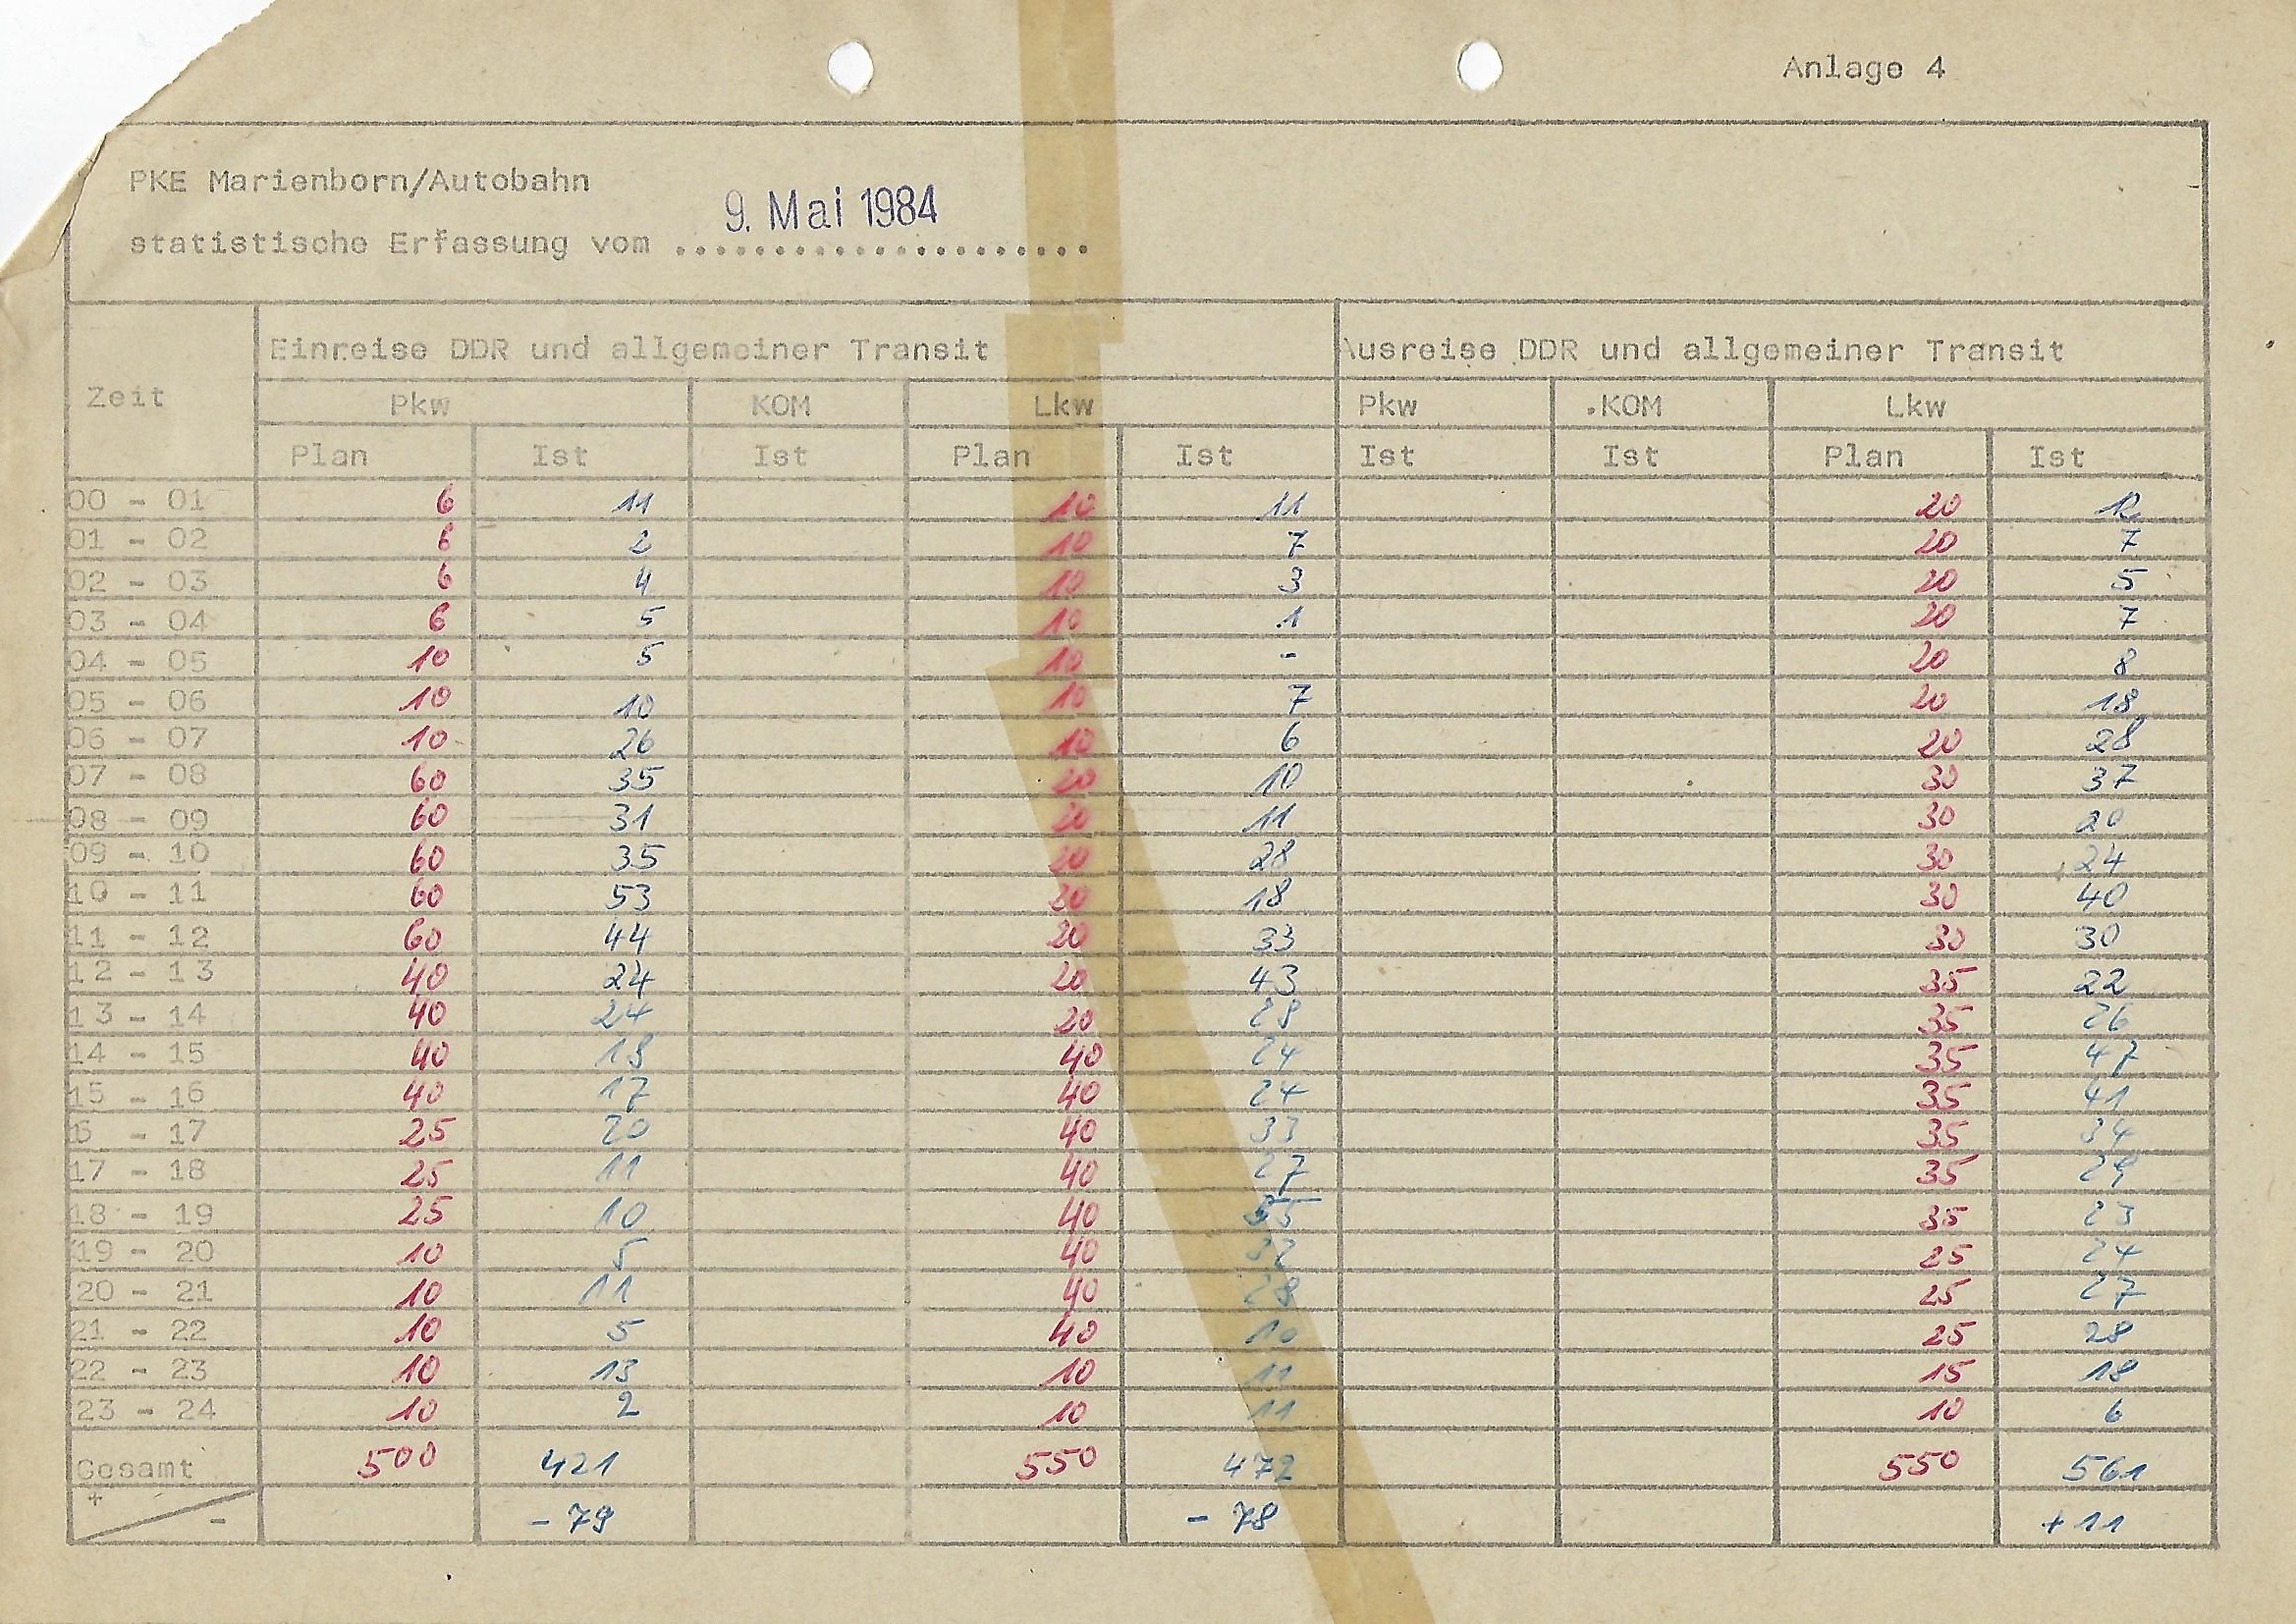 Anlage 4
PKE Marienborn/Autobahn
9. Mai 1984
statistische Erfassung vom .....................
Zeit
Einreise DDR und allgemeiner Transit Ausreise DDR und allgemeiner Transit
Pkw KOM Lkw Pkw KOM Lkw
Plan Ist Ist Plan Ist Ist Ist Plan Ist
00 - 01 6 11 10 11 20 12
01 - 02 6 2 10 7 20 7
02 - 03 6 4 10 3 20 5
03 - 04 6 5 10 1 20 7
04 - 05 10 5 10 - 20 8
05 - 06 10 10 10 7 20 18
06 - 07 10 26 10 6 20 28
07 - 08 60 35 20 10 30 37
08 - 09 60 31 20 11 30 20
09 - 10 60 35 20 28 30 24
10 - 11 60 53 18 30 40
11 - 12 60 44 20 33 30 30
12 - 13 40 24 20 43 35 22
13 - 14 40 24 20 28 35 26
14 - 15 40 18 40 24 35 47
15 - 16 40 17 40 24 35 41
- 17 25 20 40 33 35 34
17 - 18 25 11 40 27 35 29
18 - 19 25 10 40 35 23
19 - 20 10 5 40 32 25 24
20 - 21 10 11 40 28 25 27
21 - 22 10 5 40 10 25 28
22 - 23 10 13 10 11 15 18
23 - 24 10 2 10 11 10 6
Gesamt 500 421 550 472 550 561
+ - - 79 - 78 + 11